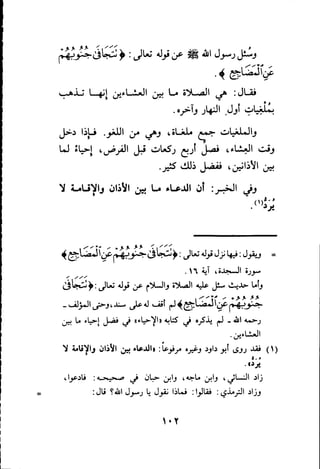 وسئل رسول الله ﷺ عن قوله تعالى : ﴿ نتجافى جنوبهم
عن المضاجع ﴾ .
فقال : هي الصلاة ما بين العشاءين إنها تذهب
بملاغات أول النهار وآخره .
والملغات جمع ملغاة ، وهي من اللغو . فإذا دخل
وقت العشاء ، أربع ركعات قبل الفرض ، أحياء لما
بين الأذانين ، ففضل ذلك كثير .
وفي الخبر : أن الدعاء ما بين الأذان والإقامة لا
يرد (١) .
= ويقول : فيها نزل قوله تعالى : ﴿ تتجافى جنوبهم عن المضاجع ﴾
سورة السجدة ، آية ١٦ .
وأما حديث سئل عليه الصلاة والسلام عن قوله تعالى : ﴿ تتجافى
جنوبهم عن المضاجع ﴾ لم أقف على سنده وخرجه الحافظ العراقي -
رحمه الله - لم يذكره في كتابه «الإحياء» في فضل إحياء ما بين
العشاءين .
(١) فقد روى أبو داود وغيره مرفوعا : «الدعاء بين الأذان والإقامة لا
يرد» .
زاد النسائي ، وابن ماجه ، وابن حبان في صحيحه : «فادعوا» ،
وزاد الترمذي : فقالوا : فماذا نقول يا رسول الله ؟ قال : =
١٠٢